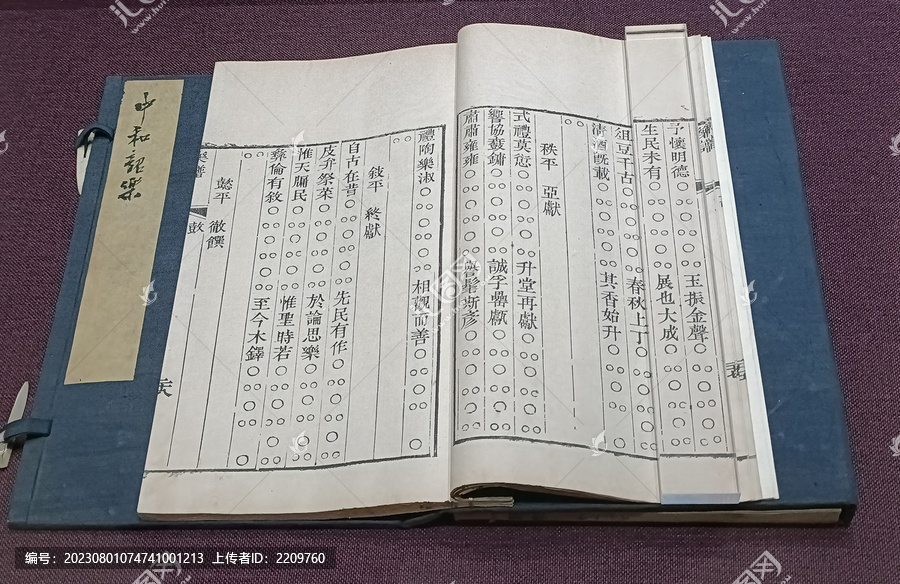 中和韶樂
予懷明德 玉振金聲
生民未有 展也大成
俎豆千古 春秋上丁
清酒既載 其香始升
秩平 亞獻
式禮莫愆 升堂再獻
響協鼖鏞 誠孚罍甗
肅肅雍雍 譽髦斯彥
禮陶樂淑 相觀而善
敘平 終獻
自古在昔 先民有作
皮弁祭菜 於論思樂
惟天牖民 惟聖時若
彝倫有敘 至今木鐸
懿平 徹饌
编号：20230801074741001213 上传者ID：2209760